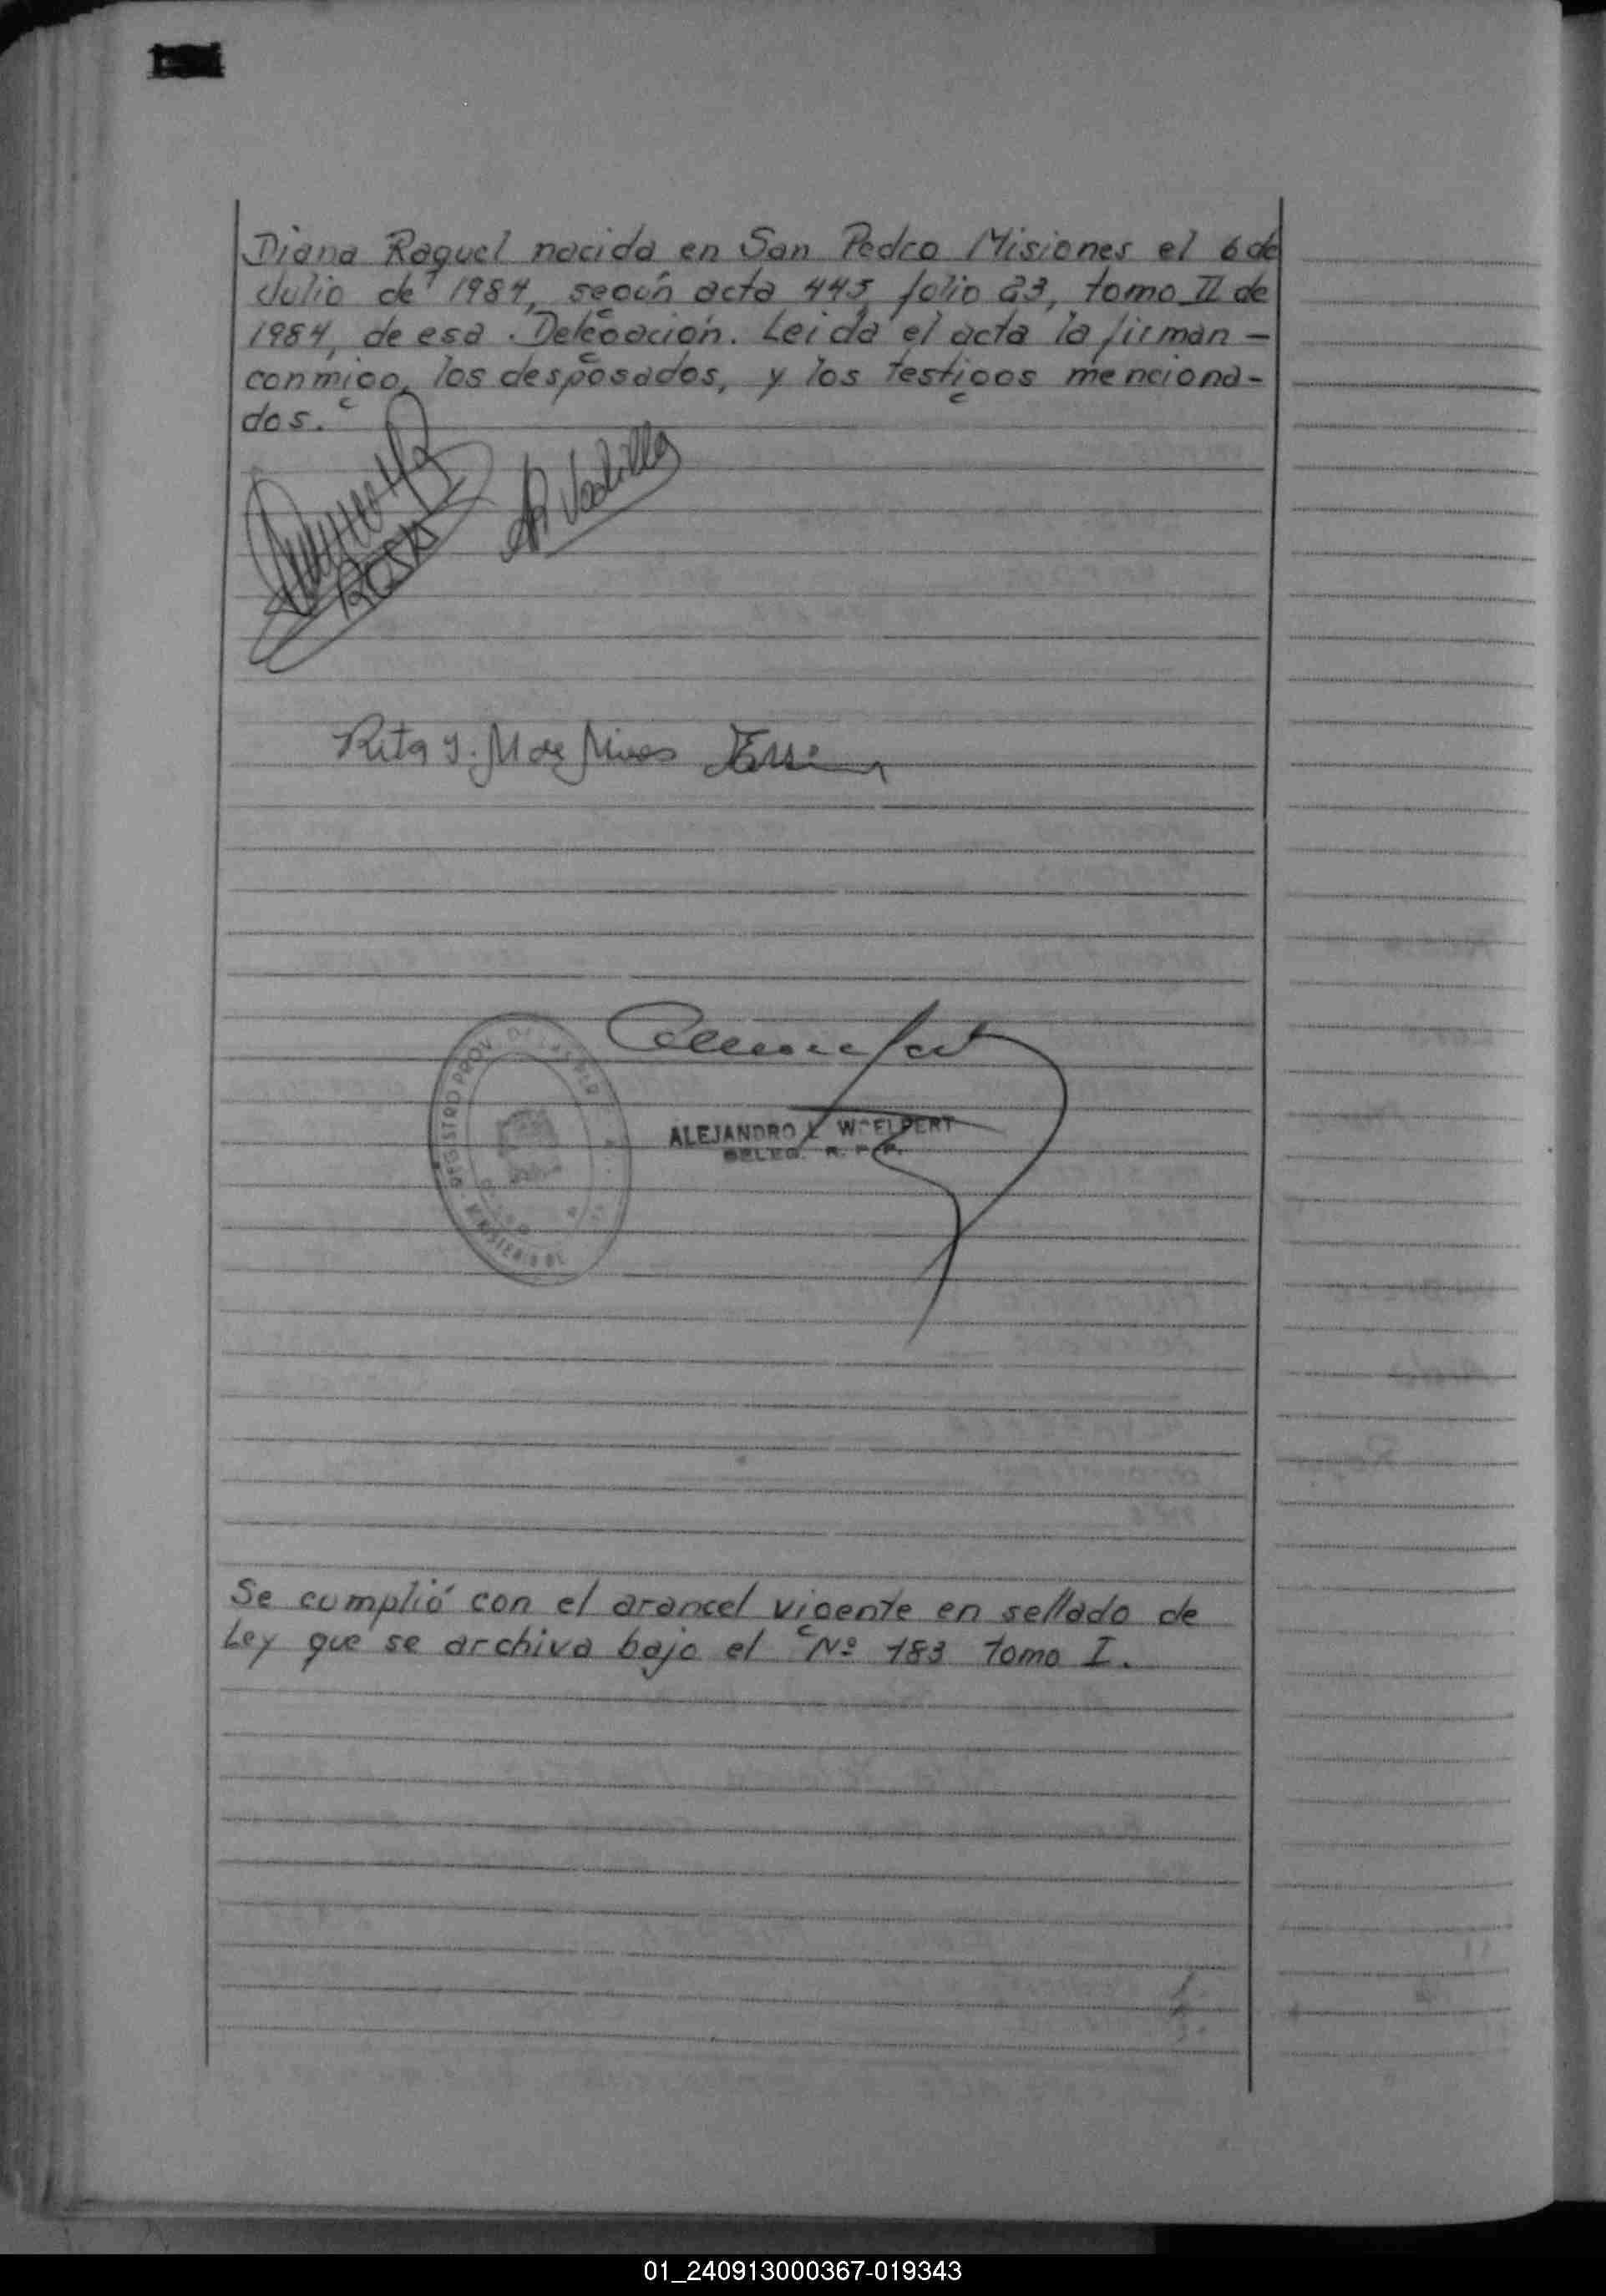 Diana Raquel nacida en San Pedro Misiones el 6 de
Julio de 1984, según acta 445, folio 23, tomo II de
1984, de esa Delegación. Leida el acta la firman -
conmigo, los desposados, y los testigos menciona-
dos.
Vadilla
ROSKI
Rita
REGISTRO PROV. DE LAS PER
MINISTERIO DE
ALEJANDRO WOELPERT
DELEG. R. P. P.
Se cumplió con el arancel vigente en sellado de
Ley que se archiva bajo el Nº 183 tomo I.
01_240913000367-019343